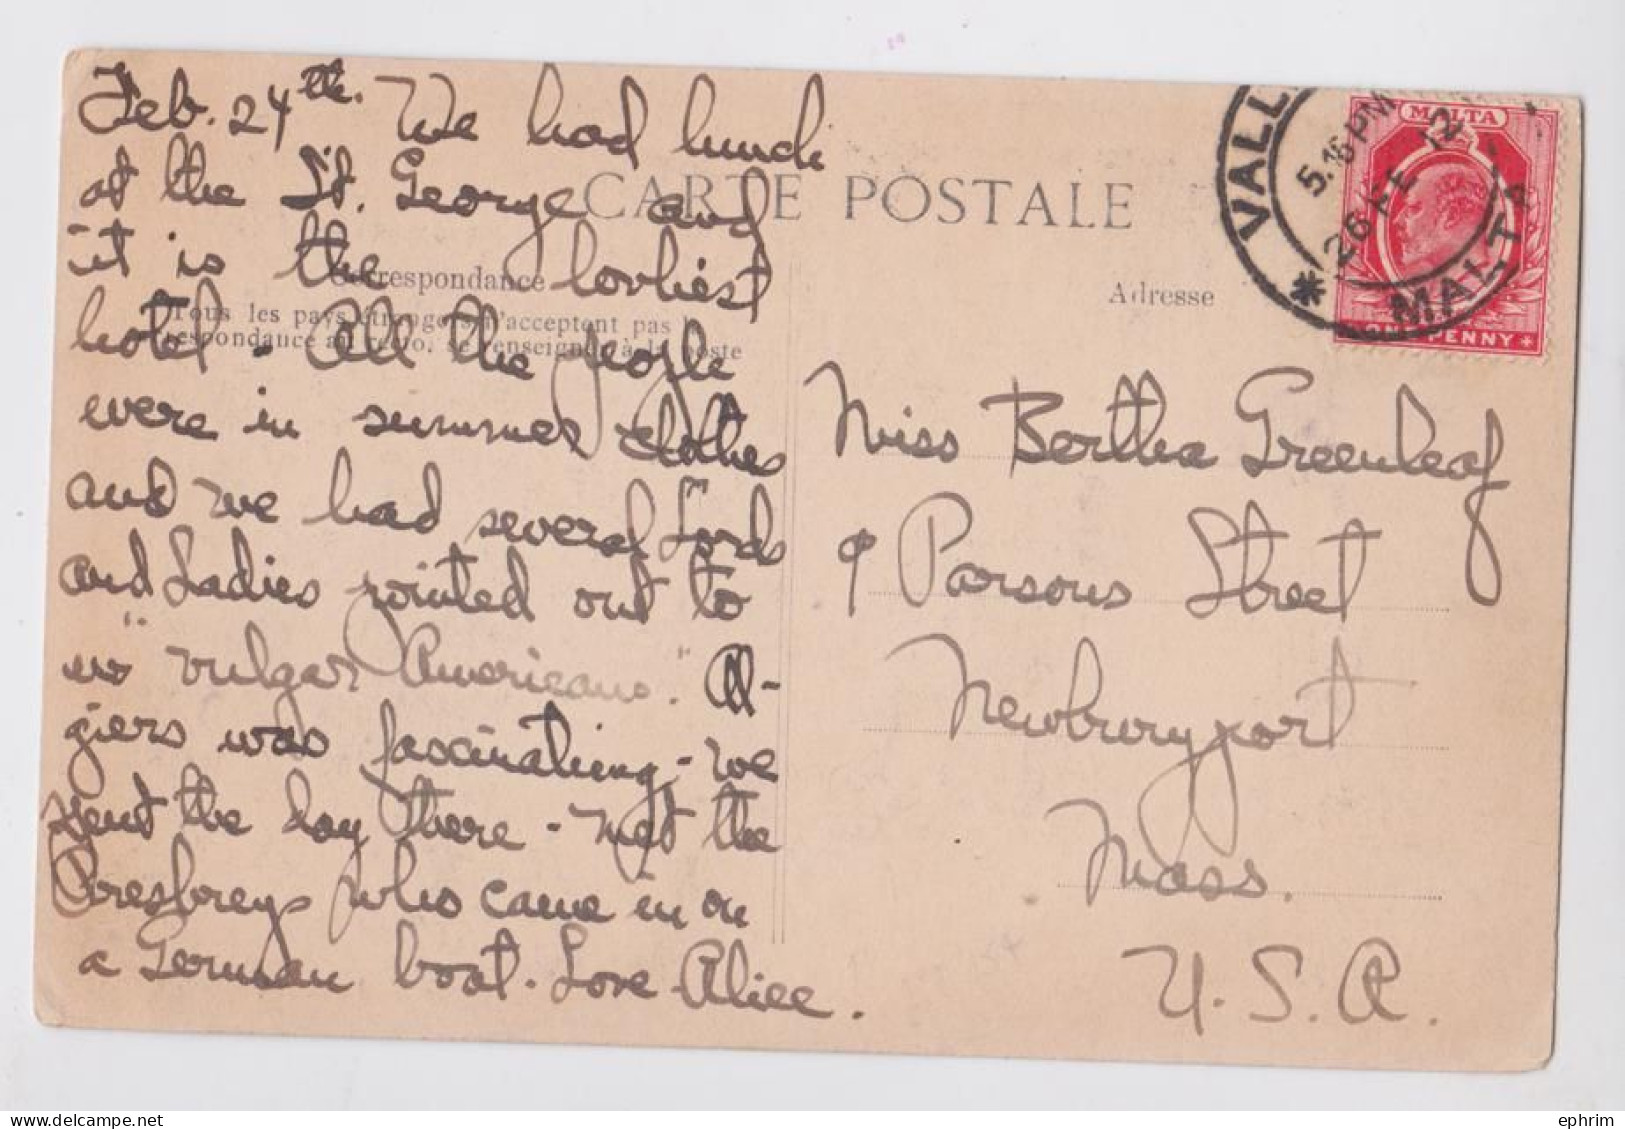 Feb. 24th. We had lunch
at the St. George and
it is the lovliest
hotel - All the people
were in summer clothes
and we had several Lords
and Ladies pointed out to
us "vulgar Americans." Al-
giers was fascinating - we
spent the day there - met the
who came in on
a German boat. Love Alice.
CARTE POSTALE
Correspondance
Tous les pays étrangers n'acceptent pas
respondance au recto, se renseigner à la poste
Adresse
Miss Bertha Greenleaf
9 Parsons Street
Newburyport
Mass.
U.S.A.
VALL
5.15 PM
26 FE 12
* MALTA
MALTA
ONE PENNY
ephrim